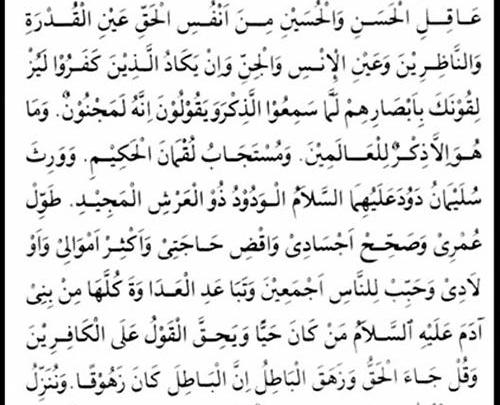 عَاقِلِ الْحَسَنِ وَالْحُسَيْنِ مِنْ اَنْفُسِ الْحَقِّ عَيْنِ الْقُدْرَةِ
وَالنَّاظِرِيْنَ وَعَيْنِ الْاِنْسِ وَالْجِنِّ وَاِنْ يَكَادُ الَّذِيْنَ كَفَرُوْا لَيُزْ
لِقُوْنَكَ بِاَبْصَارِهِمْ لَمَّا سَمِعُوْا الذِّكْرَ وَيَقُوْلُوْنَ اِنَّهُ لَمَجْنُوْنٌ. وَمَا
هُوَ اِلَّا ذِكْرٌ لِلْعَالَمِيْنَ. وَمُسْتَجَابُ لُقْمَانَ الْحَكِيْمِ. وَوَرِثَ
سُلَيْمَانُ دَوُدَ عَلَيْهِمَا السَّلَامُ الْوَدُوْدُ ذُو الْعَرْشِ الْمَجِيْدِ. طَوِّلْ
عُمْرِىْ وَصَحِّحْ اَجْسَادِىْ وَاقْضِ حَاجَتِىْ وَاَكْثِرْ اَمْوَالِىْ وَاَوْ
لَادِىْ وَحَبِّبْ لِلنَّاسِ اَجْمَعِيْنَ وَتَبَاعَدِ الْعَدَاوَةَ كُلَّهَا مِنْ بَنِىْ
آدَمَ عَلَيْهِ السَّلَامُ مَنْ كَانَ حَيًّا وَيَحِقَّ الْقَوْلُ عَلَى الْكَافِرِيْنَ
وَقُلْ جَاءَ الْحَقُّ وَزَهَقَ الْبَاطِلُ اِنَّ الْبَاطِلَ كَانَ زَهُوْقًا. وَنُنَزِّلُ